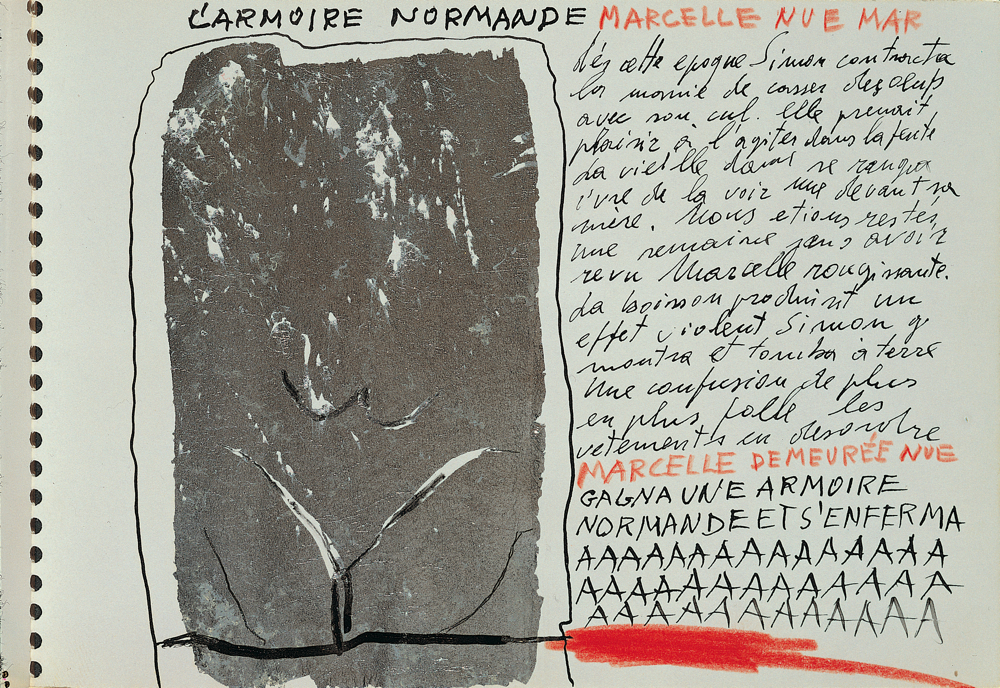 L'ARMOIRE NORMANDE MARCELLE NUE MAR
dés cette epoque Simon contracta
la manie de casser des oeufs
avec son cul. Elle prenait
plaisir à l'agiter dans la fente
La vieille dame se rangea
ivre de la voir nue devant sa
mère. Nous etions restés
une semaine sans avoir
revu Marcelle rougissante.
La boisson produisit un
effet violent Simon
montra et tomba à terre
Une confusion de plus
en plus folle les
vetements en desordre
MARCELLE DEMEURÉE NUE
GAGNA UNE ARMOIRE
NORMANDE ET S'ENFERMA
AAAAAAAAAAAAAAAA
AAAAAAAAAAAAAAA
AAAAAAAAAAAAA